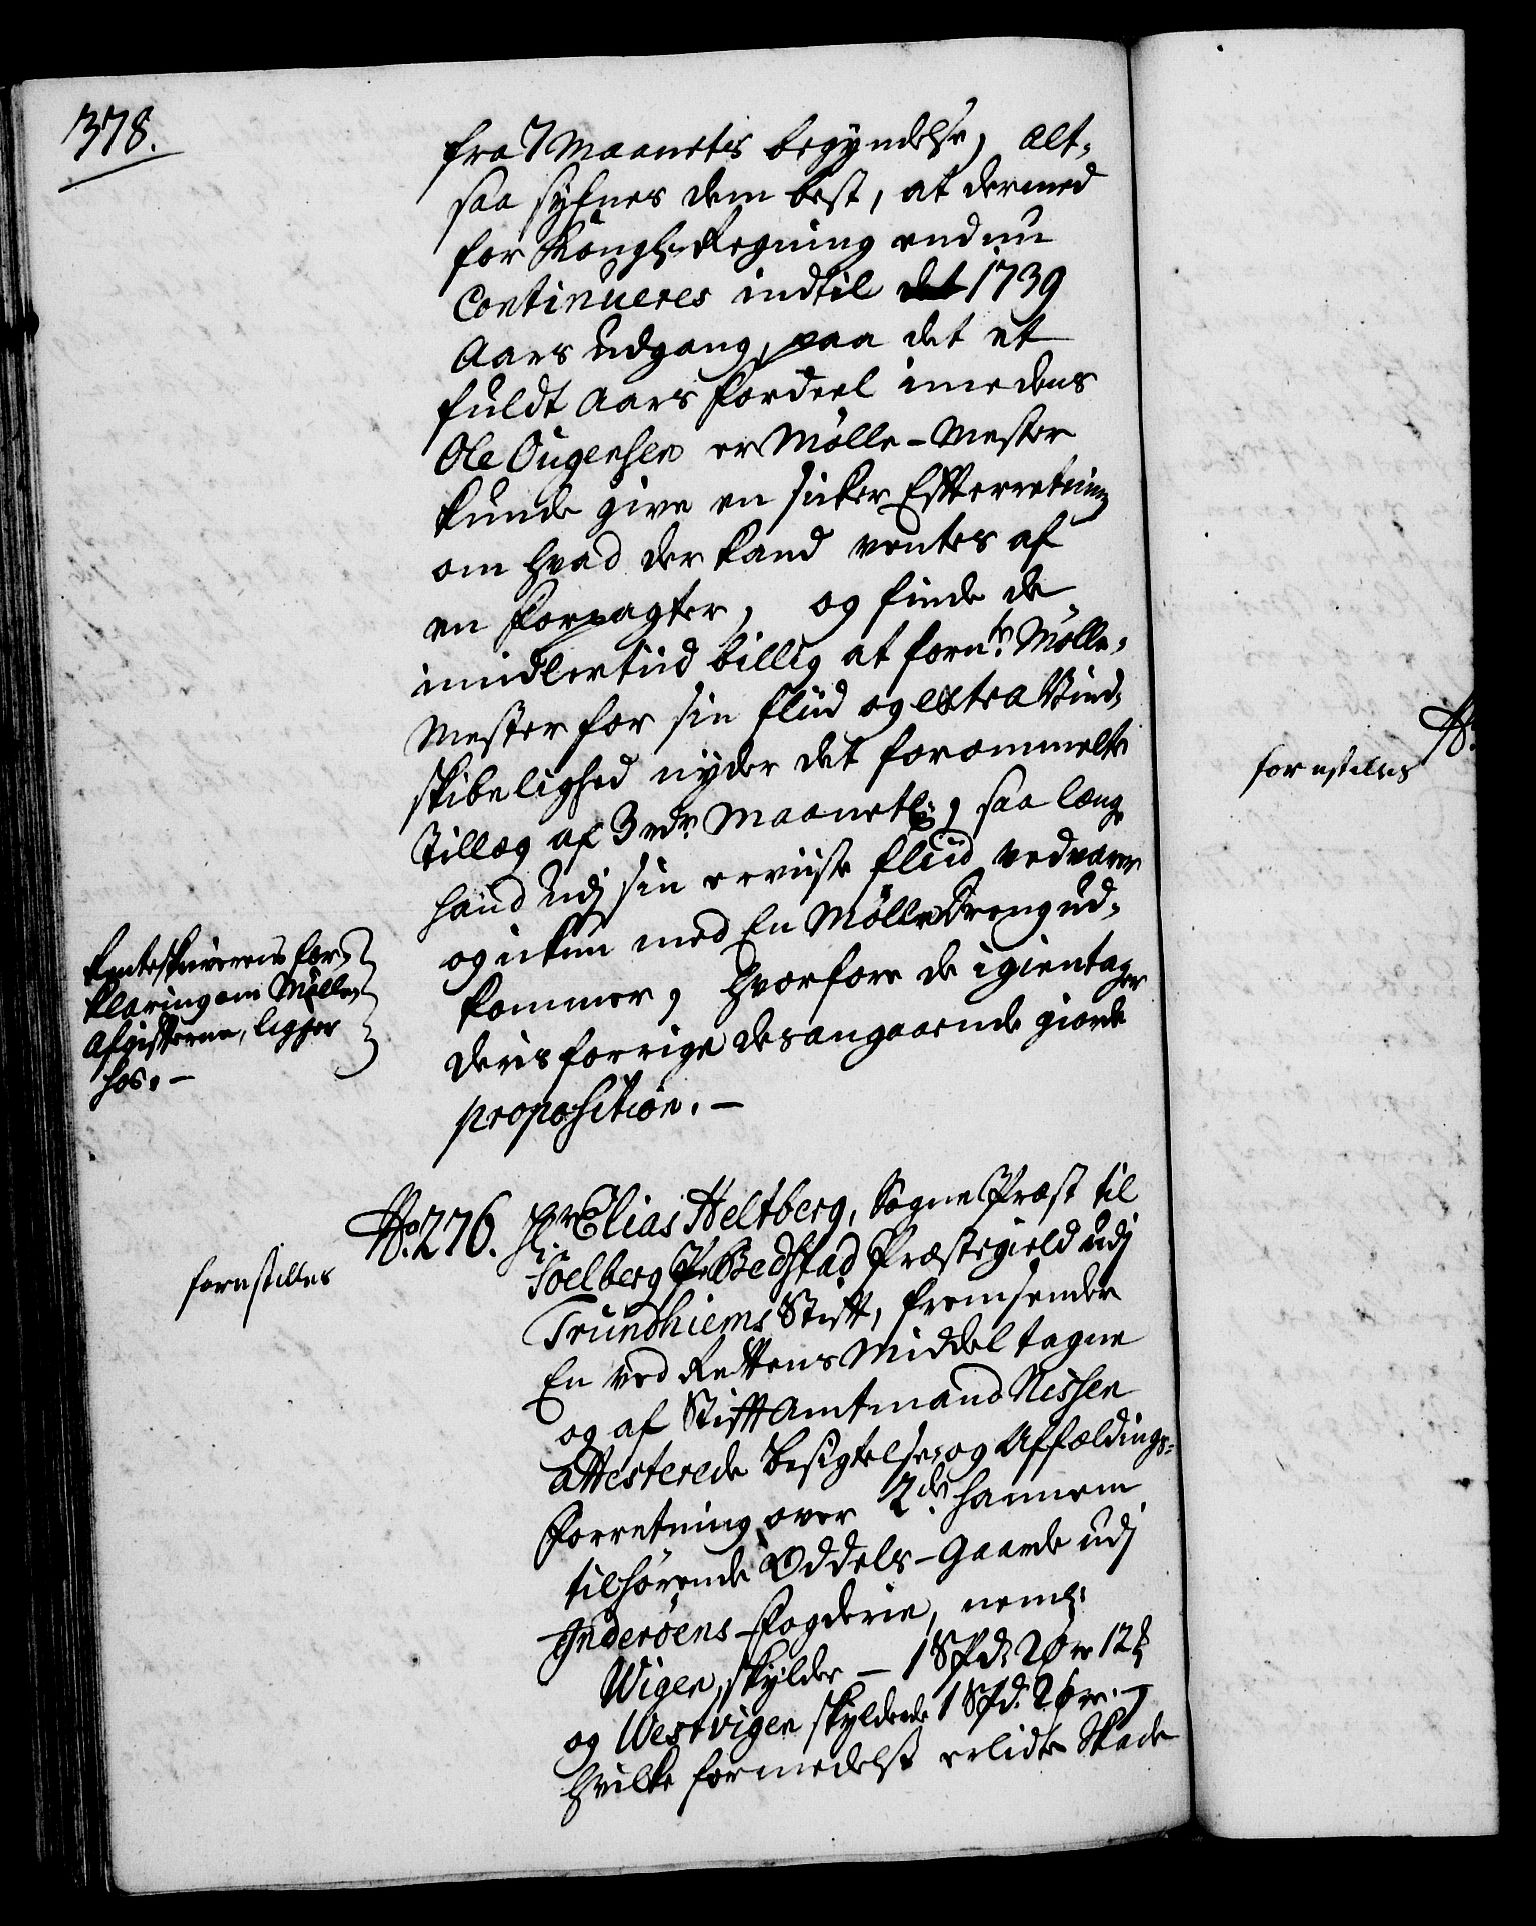 378.
fra 7 Maanetis begyndelse, alt-
saa syhnes dem best, at dermed
for Kongl: Regning endnu
Continueres indtil det 1739
Aars Udgang, paa det et
fuldt Aars fordeel imedens
Ole Ougensen er Mølle-Mester
kunde give en sicker Efterretning
om hvad der kand ventes af
en Forpagter, og finde de
imidlertiid billig at forn: Mølle-
Mester for sin fliid og extra Vind-
skibelighed nyder det forommelte
Tillæg af 3 rdr Maanetl:, saa længe
hand udj sin erviiste fliid vedvarer
og ickun med En Mølle Dreng ud-
kommer, hvorfore de igientager
deris forrige desangaaende giorde
proposition. -
Renteskriverens for-
klaring om Mølle
Afgifterne, ligger
hos. -
No: 276. Hr Elias Heltberg, Sogne Præst til
fornstilles
Soelberg Bedstad Præstegield udj
Trundhiems Stift, fremsender
En ved Rettens Middel tagne
og af Stift Amtmand Nissen
attesterede Besigtelse- og Affældings-
Forretning over 2de hannem
tilhørende Oddels-Gaarde udj
Inderøens Fogderie, neml:
Wigen, skylder - 1 Spd: 2 Øre 12
og Westvigen skyldende 1 Spd. 2 Øre. -
hvilke formedelst erlidte Skade
fornstilles
No: